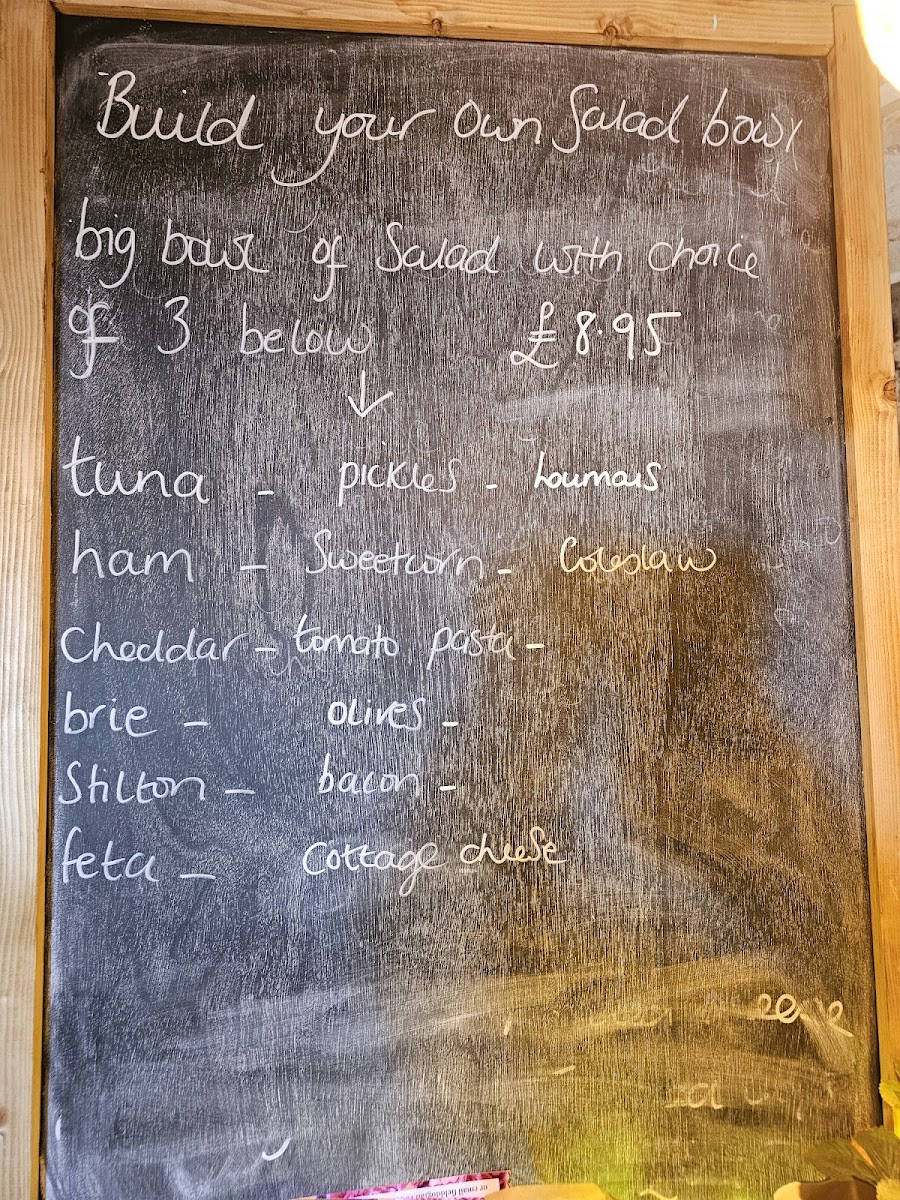 Build your own Salad bowl
big bowl of Salad with choice
of 3 below £8.95
↓
tuna - pickles - houmous
ham - Sweetcorn - Coleslaw
Cheddar - tomato pasta -
brie - olives -
Stilton - bacon -
feta - Cottage cheese